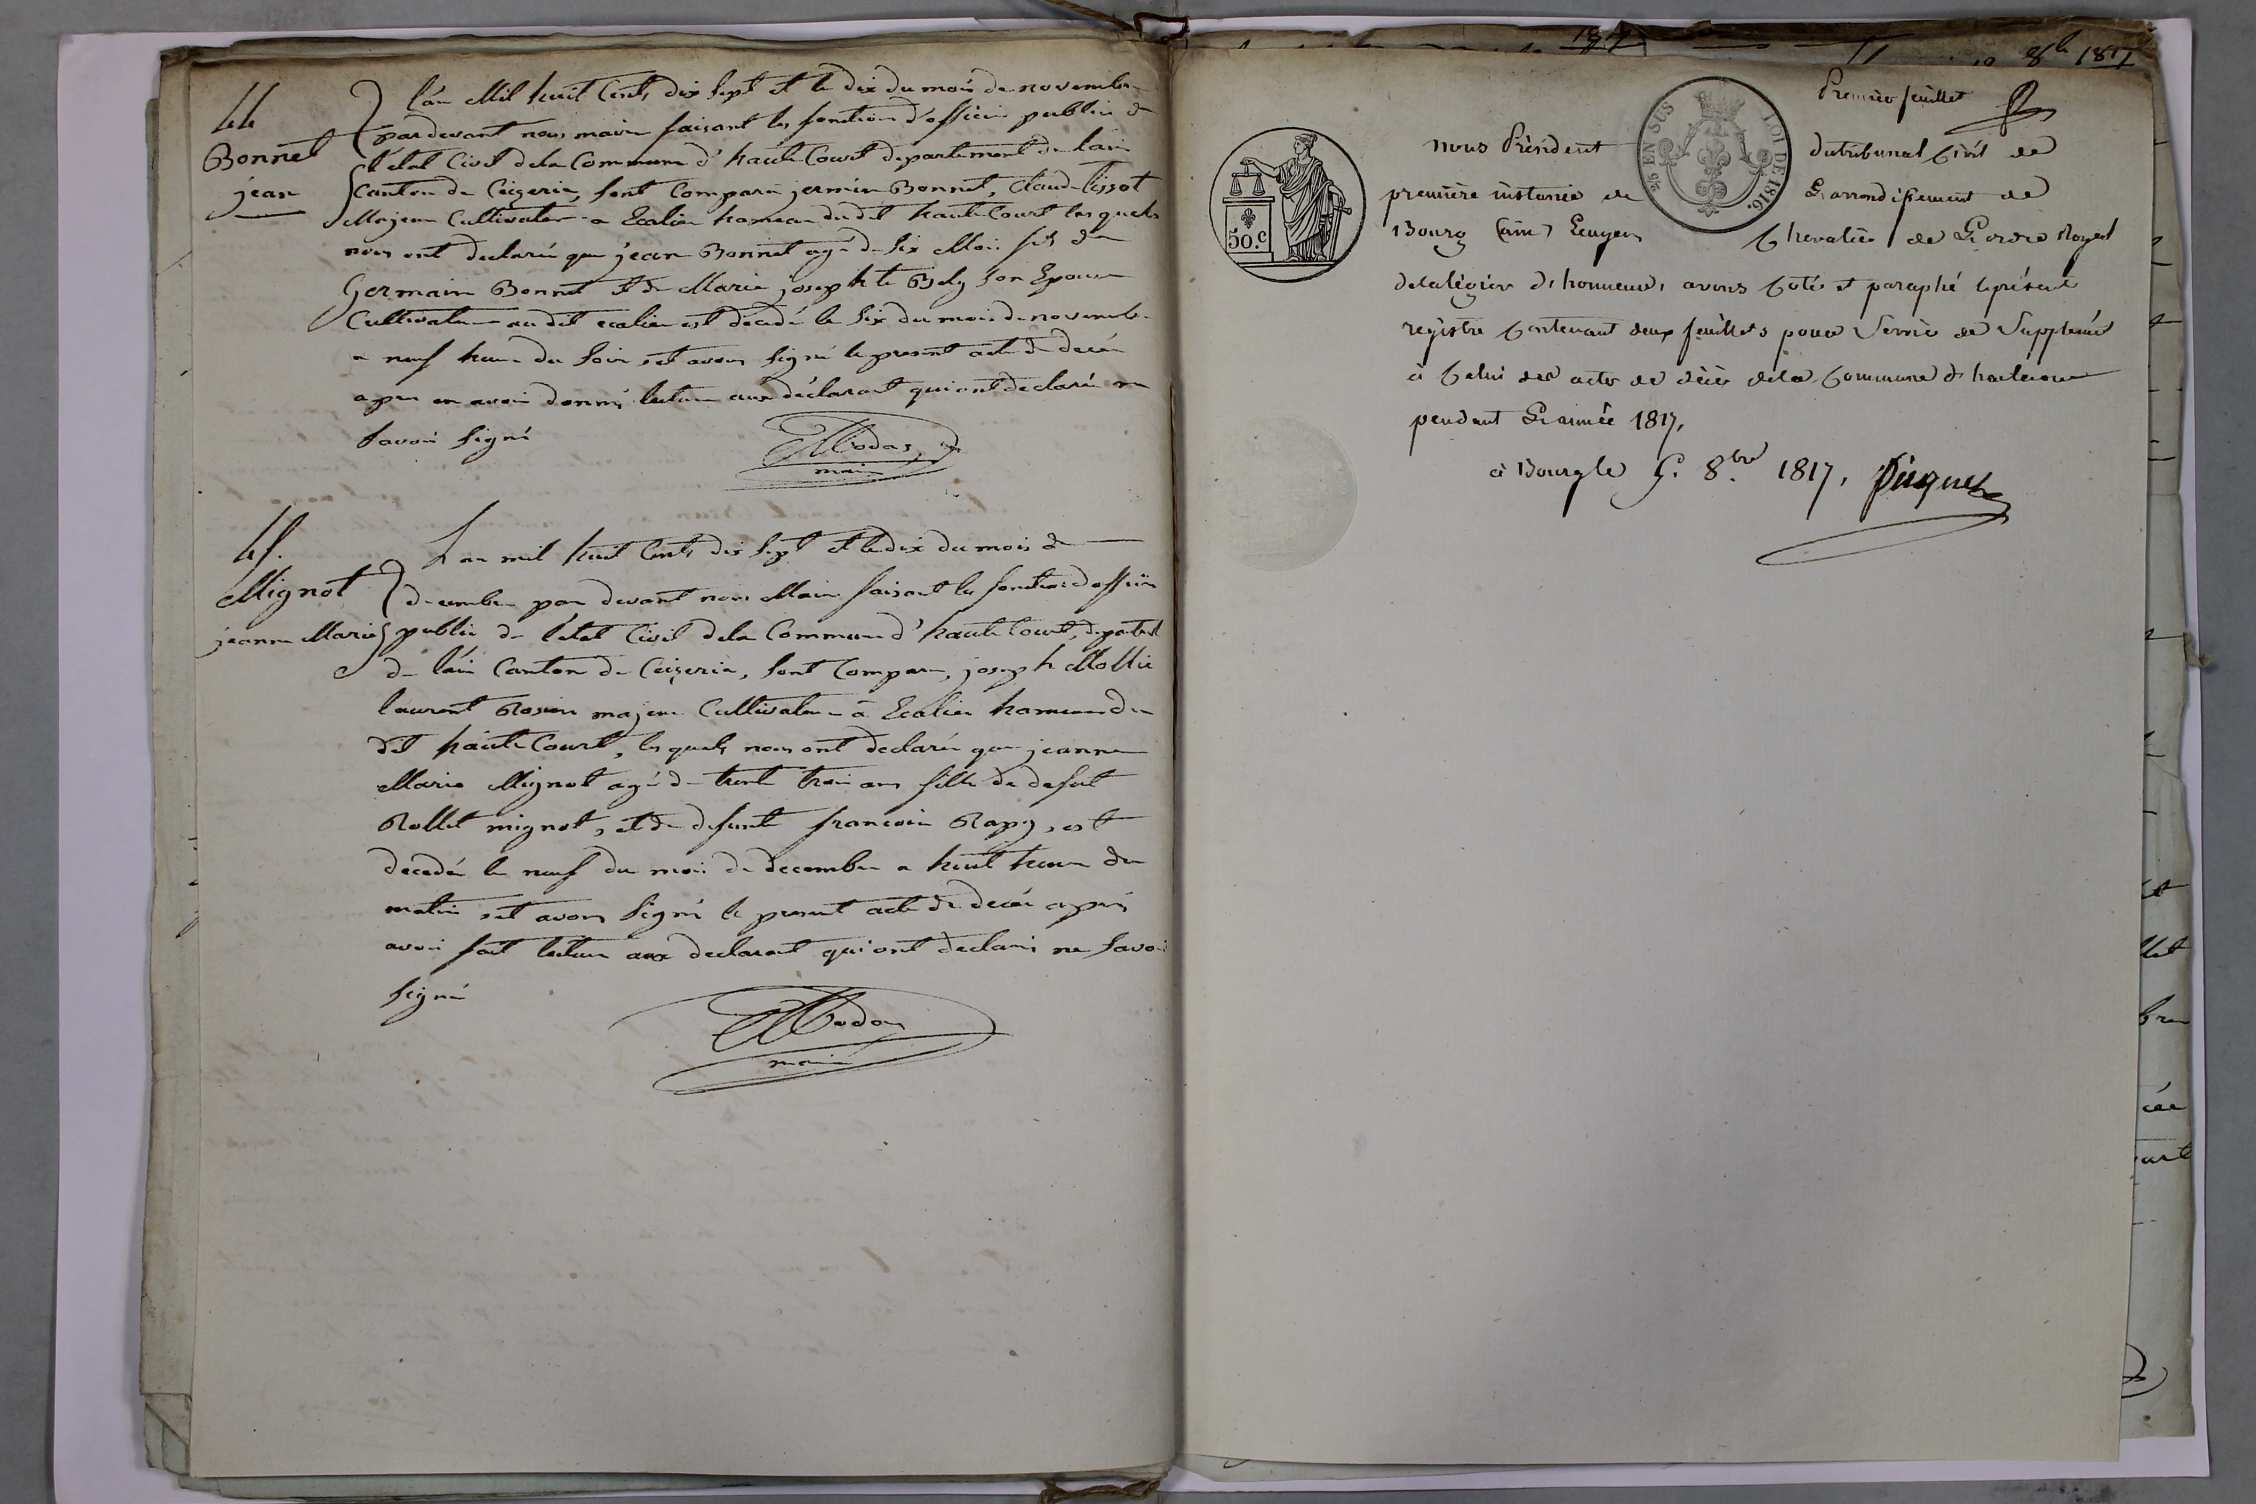 44
Bonnet
jean
l'an Mil huit Cents dix Sept et le dix du mois de novembre
pardevant nous maire faisant les fonction d'officier public de
l'état Civil dela Commune d'haute Court departement de l'ain
Canton de Ceizeria, sont Comparu jermin Bonnet, Claude tissot
Majeur Cultivateur a Ecalier hameau du dit haute Court lesquels
nous ont declarée que jean Bonnet agé de six Mois fils de
Germain Bonnet et de Marie josephte Bely son Epouse
Cultivateur au dit ecalier est décédé le six du mois de novembre
a neuf heure du Soir et avons signé le present acte de decée
apres en avoir donné lecture aux déclarant qui ont declarée ne
savoir signé
maire
45.
Mignot
jeanne Marie
L'an mil huit Cents dix Sept et le dix du mois de
decembre par devant nous Maire faisant les fonction d'officier
public de l'état Civil dela Commune d'haute Court, departest
de l'ain Canton de Ceizeria, sont Comparu, joseph Mollie
laurent Rosier majeur Cultivateur à Ecalier hameau du
dit haute Court, lesquels nous ont declarée que jeanne
Marie Mignot agé de trente trois ans fille de defunt
Rollet mignot, et de defunte francoise Rapy, est
decedée le neuf du mois de decembre a huit heure du
matin et avons signé le present acte de decée apres
avoir fait lecture aux declarant qui ont declaré ne savoir
signé
maire
8bre 1817
Premier feuillet
nous Président du tribunal Civil de
première instance de L'arrondissement de
Bourg (ain) Ecuyer Chevalier de L'ordre Royal
delalégion d'honneur, avons Coté et paraphé leprésent
registre Contenant deux feuillets pour Servir de Supplément
à Celui des actes de décès dela Commune d'hautecour
pendant L'année 1817.
à Bourg le 5. 8bre 1817.
50.C
2/6 EN SUS
LOI DE 1816.